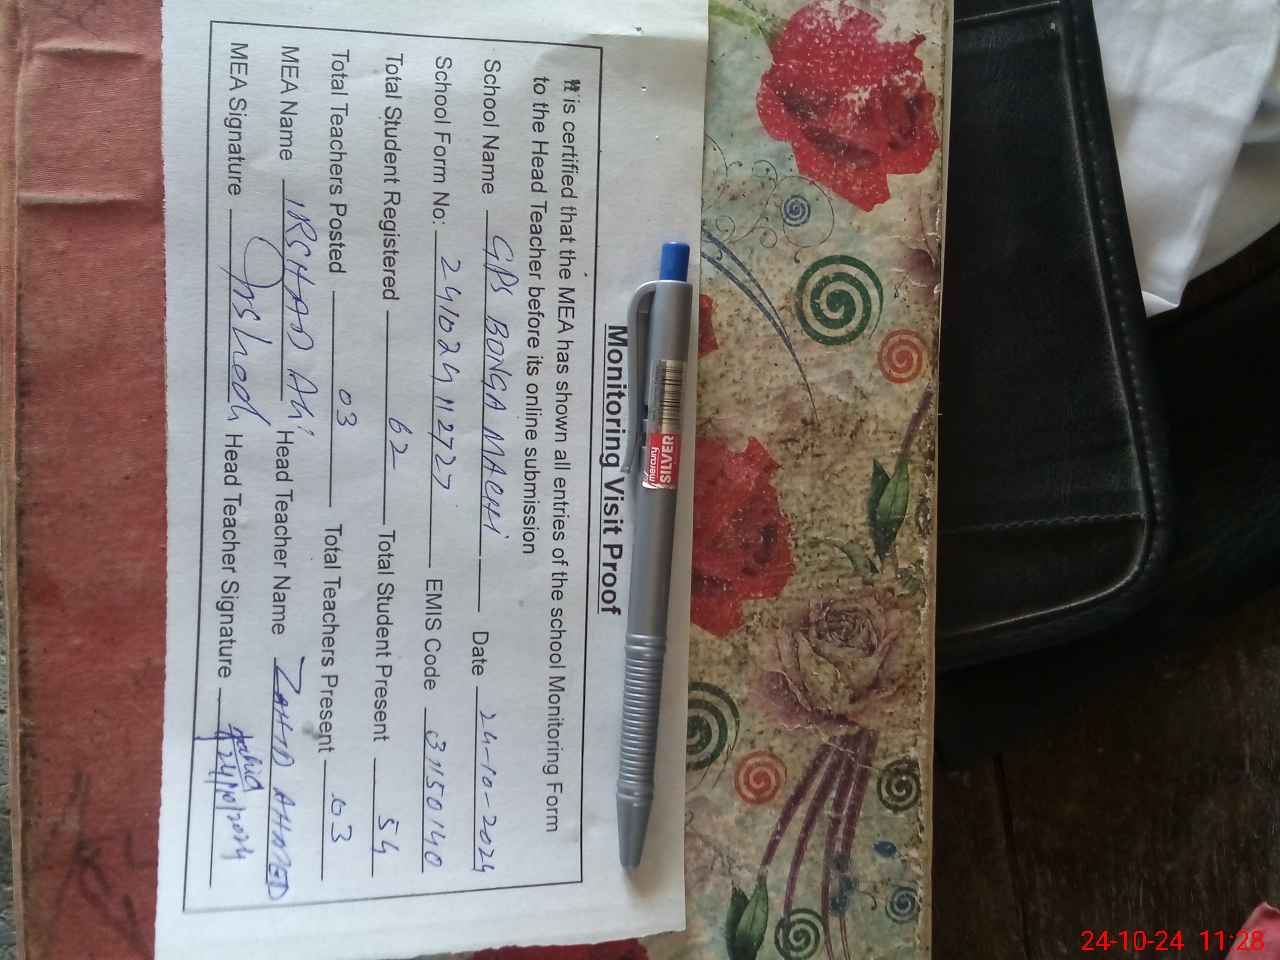 Monitoring Visit Proof
It is certified that the MEA has shown all entries of the school Monitoring Form
to the Head Teacher before its online submission
School Name GPS BONGA MACHI Date 24-10-2024
School Form No: 241024112727 EMIS Code 31150140
Total Student Registered 62 Total Student Present 54
Total Teachers Posted 03 Total Teachers Present 03
MEA Name IRSHAD Ali Head Teacher Name ZAHID AHMED
MEA Signature Irshad Head Teacher Signature Zahid
24/10/2024
SILVER
mercury
24-10-24 11:28